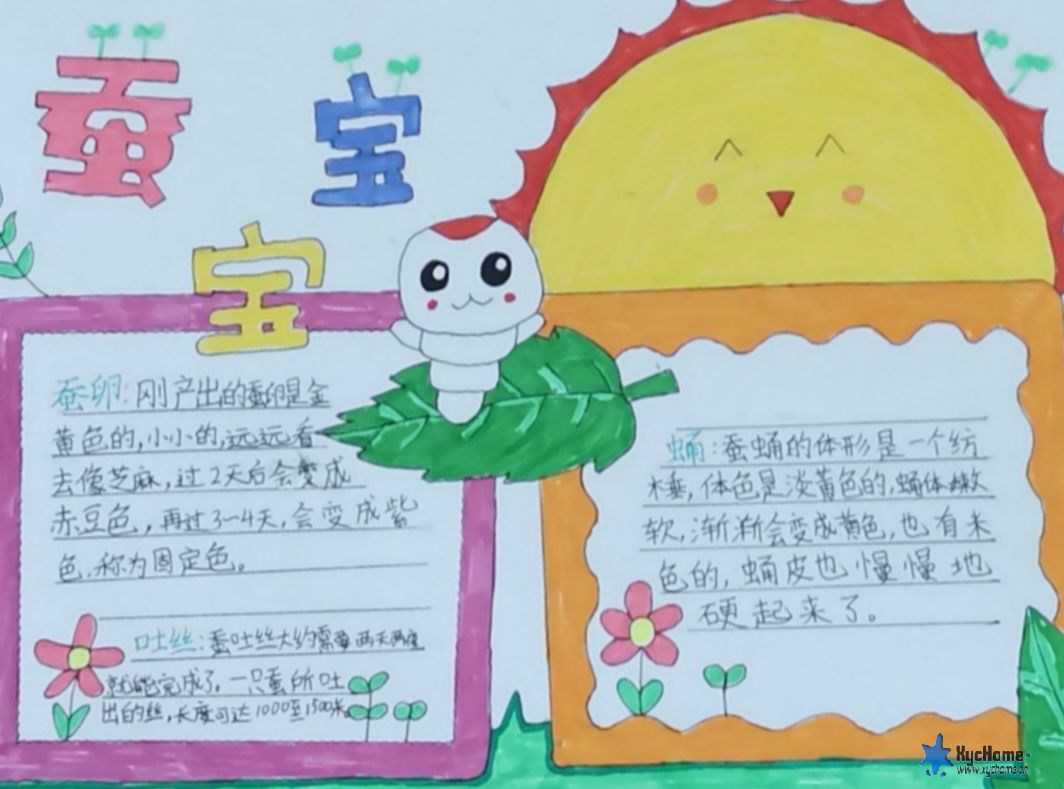 蚕宝
宝
蚕卵:刚产出的蚕卵是金
黄色的,小小的,远远看
去像芝麻,过2天后会变成
赤豆色,再过3~4天,会变成紫
色,称为固定色。
吐丝:蚕吐丝大约需要两天两夜
就能完成了。一只蚕所吐
出的丝,长度可达1000至1500米。
蛹:蚕蛹的体形是一个纺
棰,体色是淡黄色的,蛹体嫩
软,渐渐会变成黄色,也有米
色的,蛹皮也慢慢地
硬起来了。
XycHome
www.xychome.cn